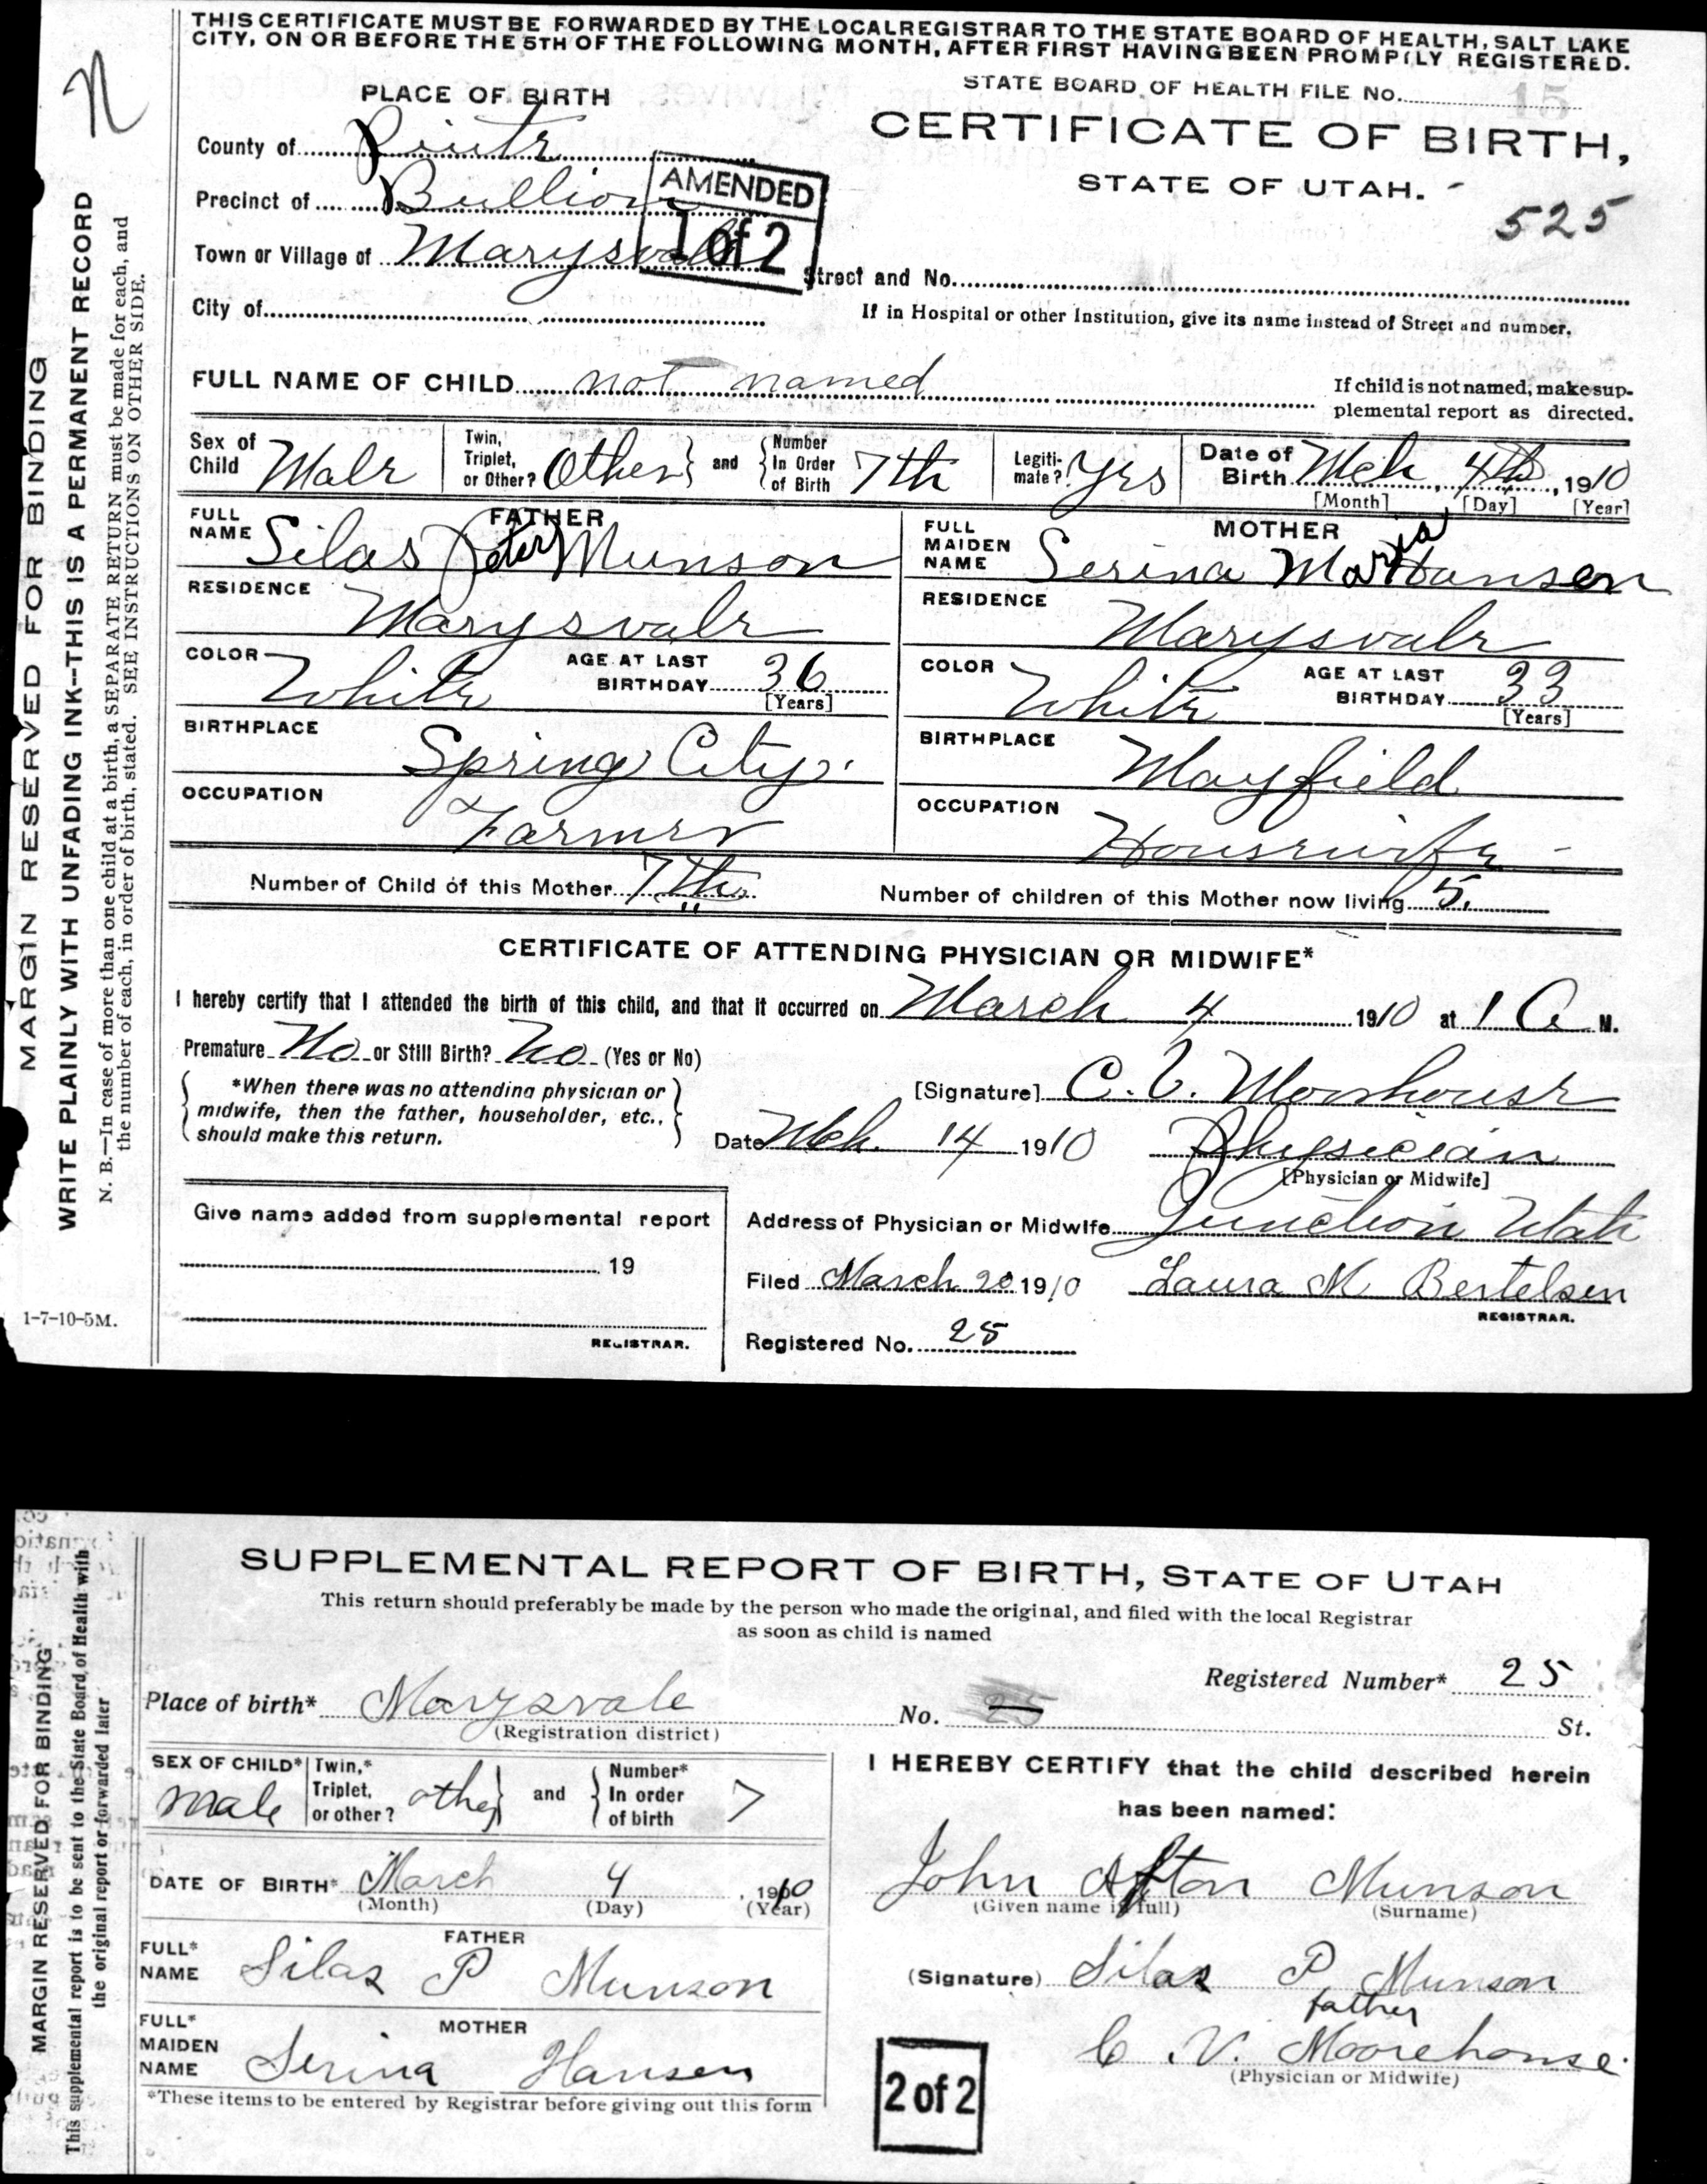 THIS CERTIFICATE MUST BE FORWARDED BY THE LOCAL REGISTRAR TO THE STATE BOARD OF HEALTH, SALT LAKE
CITY, ON OR BEFORE THE 5TH OF THE FOLLOWING MONTH, AFTER FIRST HAVING BEEN PROMPTLY REGISTERED.
N
MARGIN RESERVED FOR BINDING
WRITE PLAINLY WITH UNFADING INK--THIS IS A PERMANENT RECORD
N. B.—In case of more than one child at a birth, a SEPARATE RETURN must be made for each, and
the number of each, in order of birth, stated. SEE INSTRUCTIONS ON OTHER SIDE.
1-7-10-5M.
STATE BOARD OF HEALTH FILE No. 15
PLACE OF BIRTH
CERTIFICATE OF BIRTH,
STATE OF UTAH.
525
County of Piute
Precinct of Bullion
AMENDED
1 of 2
Town or Village of Marysvale
Street and No.
City of
If in Hospital or other Institution, give its name instead of Street and number.
FULL NAME OF CHILD not named
If child is not named, make sup-
plemental report as directed.
Sex of Child Male
Twin, Triplet, or Other? Other } and { Number In Order of Birth 7th
Legiti-mate? Yes
Date of Birth Mch 4th, 1910
[Month] [Day] [Year]
FATHER
FULL NAME Silas Peter Munson
RESIDENCE Marysvale
COLOR White AGE AT LAST BIRTHDAY 36
[Years]
BIRTHPLACE Spring City.
OCCUPATION Farmer
MOTHER
FULL MAIDEN NAME Serina Maria Hansen
RESIDENCE Marysvale
COLOR White AGE AT LAST BIRTHDAY 33
[Years]
BIRTHPLACE Mayfield
OCCUPATION Housewife -
Number of Child of this Mother 7th. Number of children of this Mother now living 5.
CERTIFICATE OF ATTENDING PHYSICIAN OR MIDWIFE*
I hereby certify that I attended the birth of this child, and that it occurred on March 4 1910 at 1 A M.
Premature No or Still Birth? No (Yes or No)
{ *When there was no attending physician or
midwife, then the father, householder, etc.,
should make this return. }
[Signature] C. V. Morehouse
Date Mch. 14 1910 Physician
[Physician or Midwife]
Give name added from supplemental report
19
REGISTRAR.
Address of Physician or Midwife Junction Utah
Filed March 20 1910 Laura M Bertelsen
REGISTRAR.
Registered No. 25
MARGIN RESERVED FOR BINDING
This supplemental report is to be sent to the State Board of Health with
the original report or forwarded later
SUPPLEMENTAL REPORT OF BIRTH, STATE OF UTAH
This return should preferably be made by the person who made the original, and filed with the local Registrar
as soon as child is named
Registered Number* 25
Place of birth* Marysvale No. 25 St.
(Registration district)
SEX OF CHILD* male
Twin,* Triplet, or other? other } and { Number* In order of birth 7
DATE OF BIRTH* March 4, 1910
(Month) (Day) (Year)
FATHER
FULL* NAME Silas P Munson
MOTHER
FULL* MAIDEN NAME Serina Hansen
*These items to be entered by Registrar before giving out this form
I HEREBY CERTIFY that the child described herein
has been named:
John Afton Munson
(Given name in full) (Surname)
(Signature) Silas P. Munson
father
C. V. Moorehouse.
(Physician or Midwife)
2 of 2